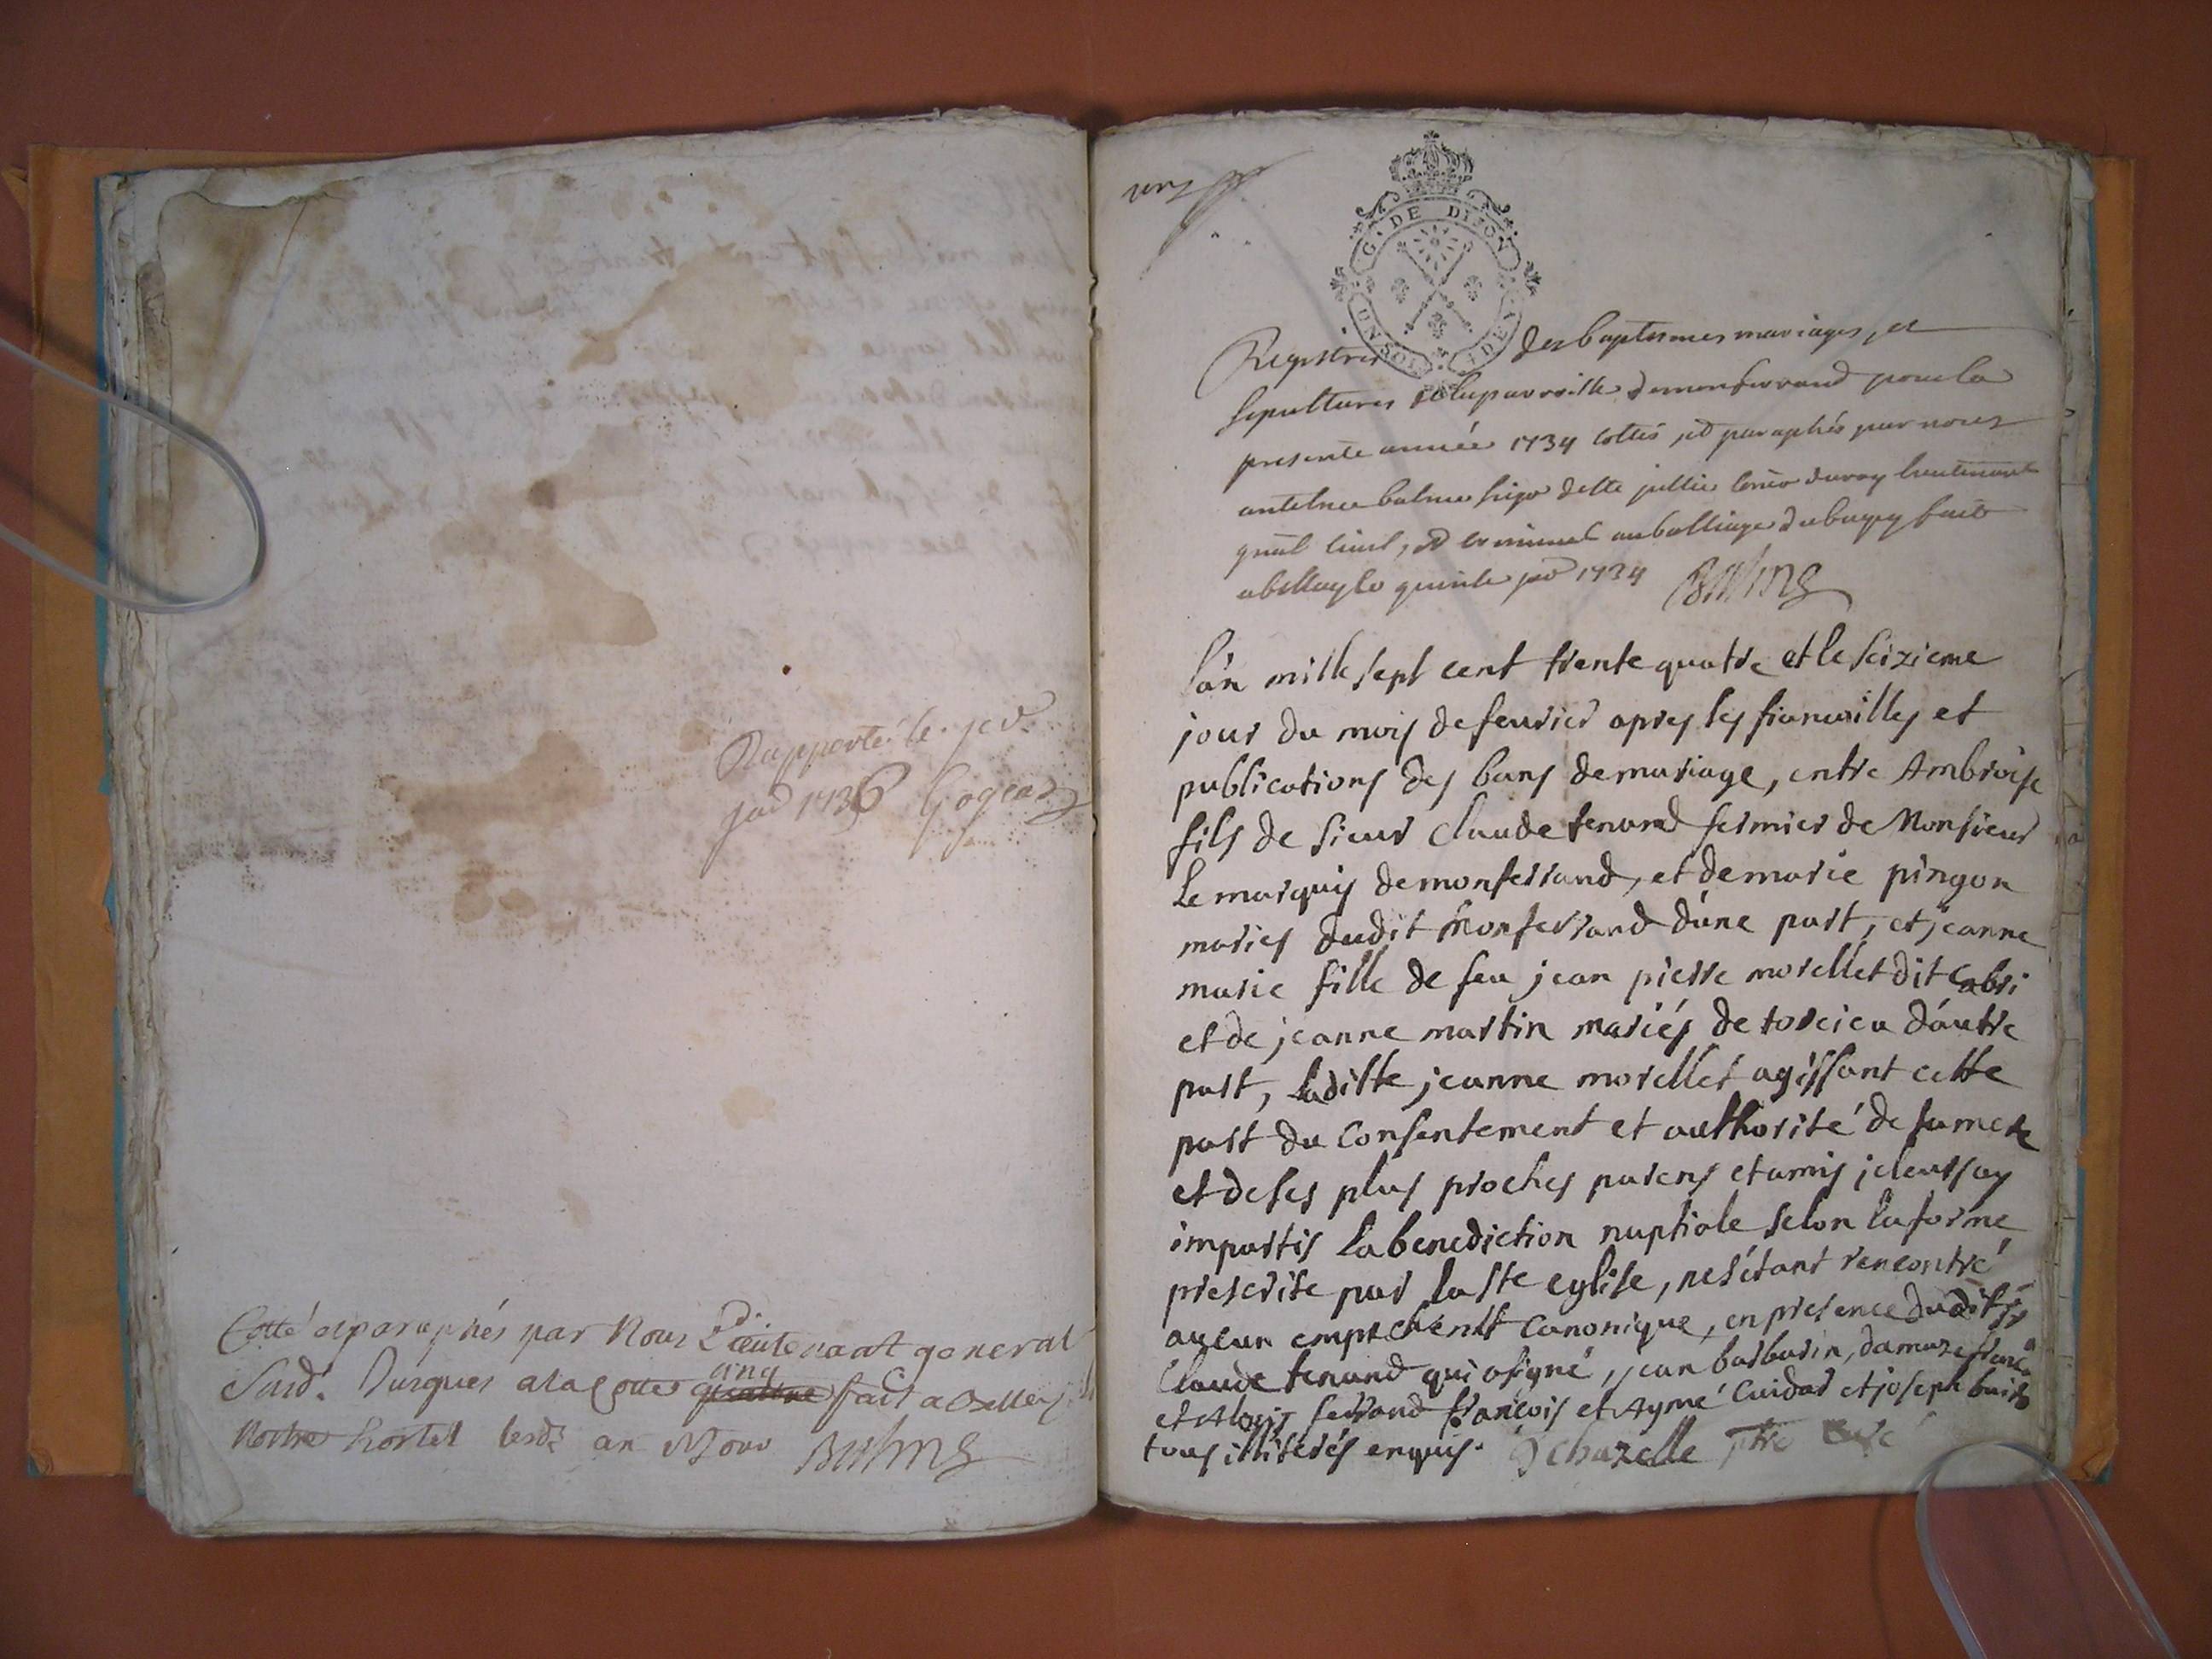 Rapporté le
jad 1736
Cotté et paraphés par Nous Lieutenant general
Susd. Jusques a la Cotte cinq quattre fait a Belley
Nostre hostel lesd. an Jour Balme
un
G. DE DIJON
UN SOL
Registres des baptesmes mariages, et
sepultures de la parroisse de monferrand pour la
presente année 1734 cottés et paraphés par nous
antelme balme sieur de lieutenant
gnal civil, et criminel au balliage du bugey fait
a belley le 1734 Balme
l'an mille sept cent trente quatre et le seizieme
jour du mois de feurier apres les fiancailles et
publications des bans de mariage, entre Ambroise
fils de sieur claude tenand fermier de Monsieur
Le marquis de monferrand, et de marie pingon
mariés dudit monferrand d'une part, et jeanne
marie fille de feu jean pierre morellet dit Cabri
et de jeanne martin mariés de torcieu d'autre
part, laditte jeanne morellet agissant cette
part du Consentement et authorité de sa mere
et de ses plus proches parens et amis je leurs ay
impartis la benediction nuptiale selon la forme
prescrite par la ste eglise, ne s'étant rencontré
aucun empechemt Canonique, en presence dudit sr
Claude tenand qui a signé, jean barbarin, damaze
et ferrand francois et Aymé Cuidat et joseph
tous illiterés enquis. Dchazelle ptre Curé